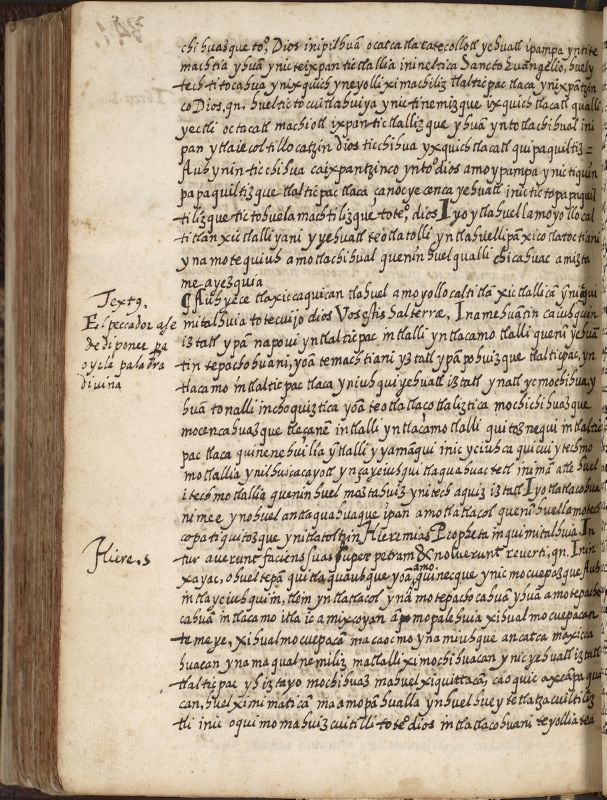 341.
chihuazque toº Dios inipilhuã ocatca tlatatecollotl yehuatl ipampa yntite
machtia yhuã ynic teixpan tictlallia inin eltica Sancto Euangelio, huel y
tech titocahua ynixquich yneyolliximachiliz tlalticpac tlaca, ynixpãtzin
co Dios, qn, huel tictocuitlahuiya ynic tinemizque ixquich tlacatl qualli
yectli octacatl machiotl ixpan tictlallizque yhuã ynto tlachihual ini
pan ytlaieloltillocatzin dios ticchihua yxquich tlacatl quipaquiltiz =
Auh ynin ticchihua caixpantzinco yntoº dios amo ypampa ynictiquin
papaquiltizque tlalticpac tlaca, ça noce yecenca yehuatl inic tictopapaquil
tilizque tictohuelamachtilizque, toteº dios Iyo ytlahuel lamoyollocal
titlan xictlalliyani y yehuatl teotlatolli yntlahuellipã xicotlatoctiani
yn amotequiuh amotlachihual quenin huel qualli chicahuac amizta
meayezquia
¶ Auhyece tlaxiccaquican tlahuel amoyollocaltitlã xictlallicã yniuhqui
mitalhuia totecuiyo dios Vos estis sal terræ, Inamehuãtin caiuhquin
iztatl ypã napoui yntlalticpac intlalli yntlacamo tlalli quenĩ yehuã
tin tepachohuani, yoã temachtiani yztatl ypã pohuizque tlalticpac, yn
tlacamo intlalticpac tlaca yniuhqui yehuatl iztatl ynatl ycmochihua, y
huã tonalli inchoquiztica yoã teotlatlaçotlaliztica mochichihuazque
mocencahuazque tleçanẽ intlalli yntlaçamo tlalli quitoznequi intlaltic
pac tlaca quinenehuilia ỹtlalli yyamãqui inic yciuhca quicui ytechmo
motlallia ynilhuicacayotl ynçayciuhqui tlaquahuac tetl inimã atle huel
itechmotlallia quenin huel maztahuiz ynitech aquiz iztatl Iyotlatlacohua
nimee, ynohuel antlaquahuaque ipan amotlatlacol quenĩ huellamotech
copa tiquitozque ynitlatoltzin Hieremias Propheta inquimitalhuia In
tur auerunt facies suas super petram & noluerunt reuerti, qn. Inin
xayac, ohueltepã quitlaquauhque yoã, amo quinecque ynic mocuepazque Auh
intlayciuhquim, tlein yntlatlacol ynã motepachocahuã yhuã amotepacho
cahuã intlacamo itla ic amixcoyan ã mopalehuia xihualmocuepacan
temeye, xihualmocuepacã macaocmo ynamiuhque ancatca maxicca
huacan ynamaqualnemiliz matlalli ximochihuacan ynic yehuatl iztatl
tlalticpac yhiztayo mochihuaz mahuel xiquittacã, caoquic axcãpa qua
can, huel ximimaticã maamopã hualla ynhuel huey tetlatzacuiltiliz
tli inic oquimomahuizcuitilli toteº dios intlatlacohuani teyolliatea
Textq.
El peccador a se
de disponer pa
oyr la palabra
diuina
Hiere. 5